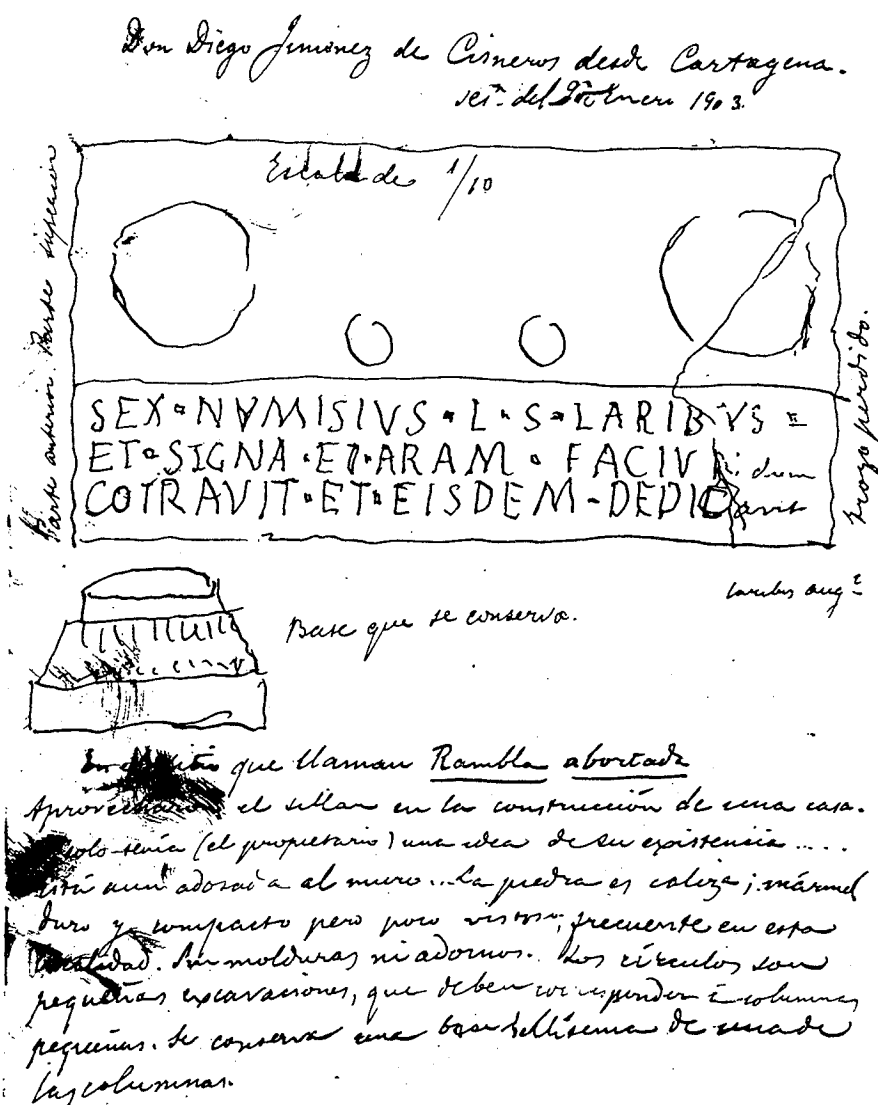 Don Diego Jimenez de Cisneros desde Cartagena.
del Enero 1903.
Escala de 1/10
Parte anterior. Parte superior
trozo perdido.
SEX▫NVMISIVS▫L▫S▫LARIBVS
ET▫SIGNA▫ET▫ARAM▫FACIVNdum
COIRAVIT▫ET▫EISDEM▫DEDICavit
laribus aug
Base que se conserva.
En el sitio que llaman Rambla abortada
Aprovecharon el sillar en la construcción de una casa.
solo tenía (el propietario) una idea de su existencia .....
está aun adosada al muro... La piedra es caliza; mármol
duro y compacto pero poco vistoso, frecuente en esta
localidad. Sin molduras ni adornos. Los círculos son
pequeñas excavaciones, que deben corresponder á columnas
pequeñas. Se conserva una base bellísima de una de
las columnas.